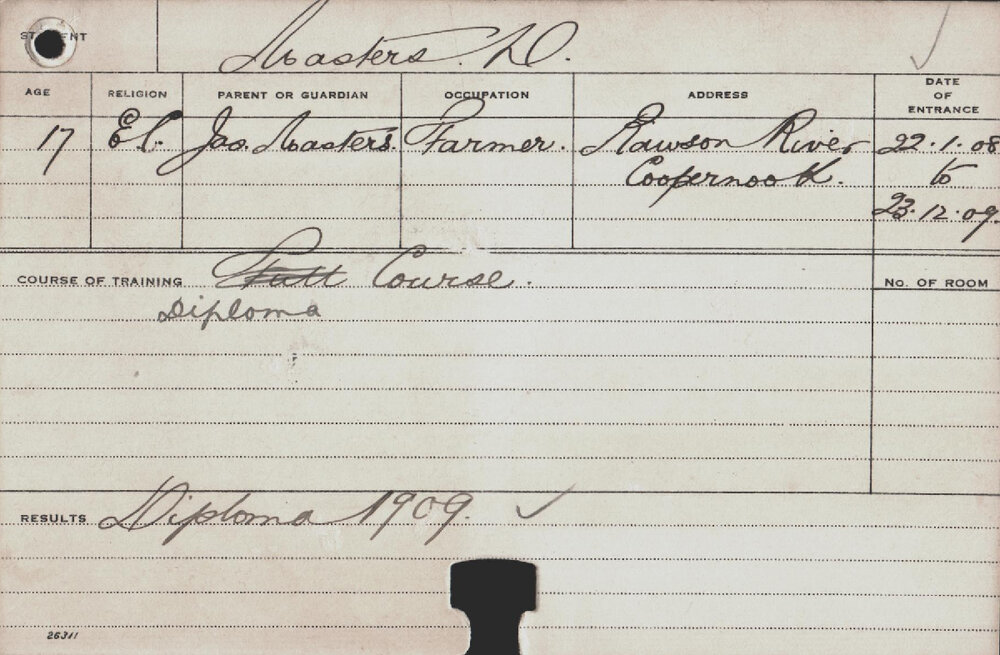 STUDENT Masters. D.
AGE RELIGION PARENT OR GUARDIAN OCCUPATION ADDRESS DATE OF ENTRANCE
17 E.C. Jas. Masters. Farmer. Rawson River 22.1.08
Coopernook. to
23.12.09.
COURSE OF TRAINING Full Course. No. OF ROOM
Diploma
RESULTS Diploma 1909. ✓
26311